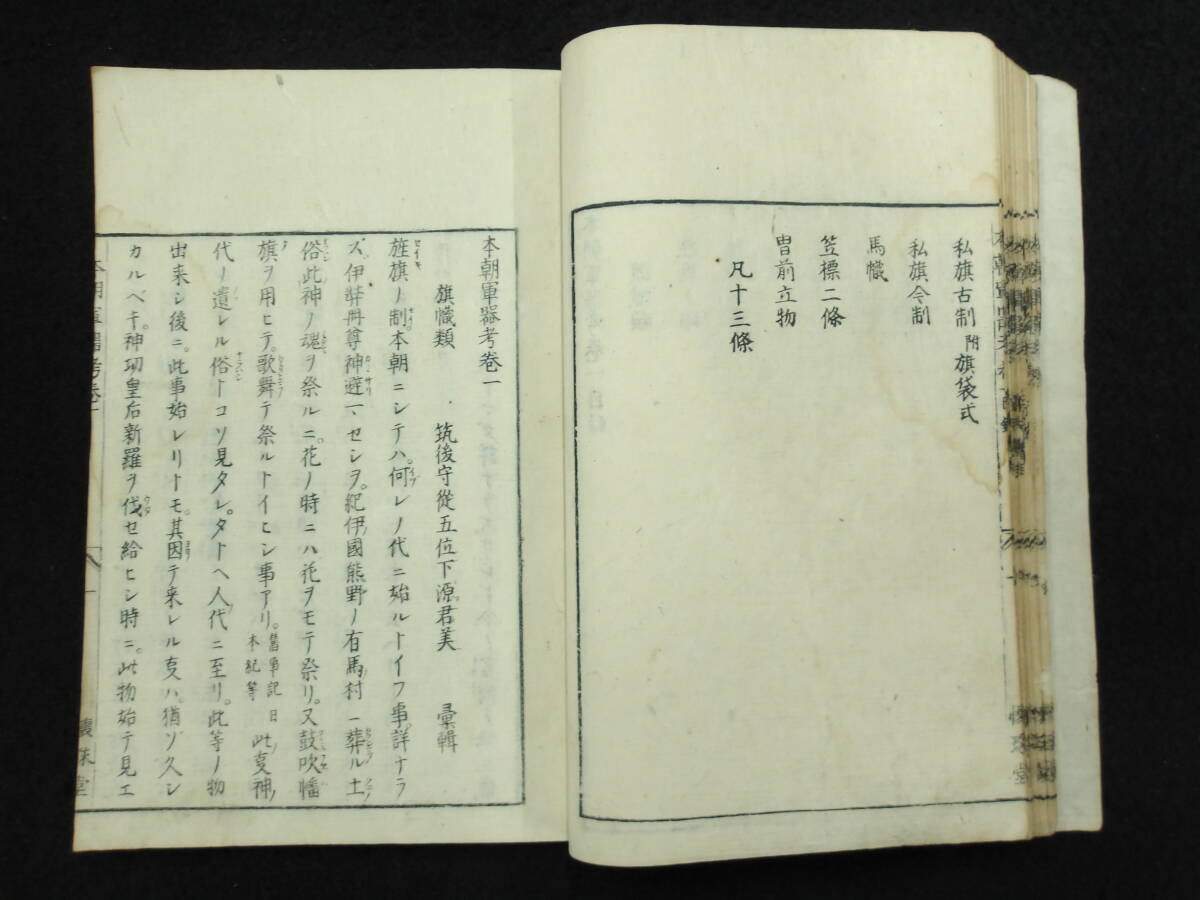 私旗古制 附旗袋式
私旗今制
馬幟
笠標二條
冑前立物
凡十三條
本朝軍器考巻一
旗幟類 筑後守從五位下源君美 彙輯
旌旗ノ制本朝ニシテハ。何レノ代ニ始ルトイフ事。詳ナラ
ズ。伊弉冊尊神避マセシヲ。紀伊國熊野ノ有馬村ニ葬ル土
俗此神ノ魂ヲ祭ルニ。花ノ時ニハ花ヲモテ祭リ。又鼓吹幡
旗ヲ用ヒテ。歌舞テ祭ルトイヒシ事アリ。舊事記日本紀等此事神
代ノ遺レル俗トコソ見タレ。タトヘ人代ニ至リ。此等ノ物
出来シ後ニ。此事始レリトモ。其因テ来レル事ハ。猶ゾ久シ
カルベキ。神功皇后新羅ヲ伐セ給ヒシ時ニ。此物始テ見エ
本朝軍器考巻一
懐珠堂